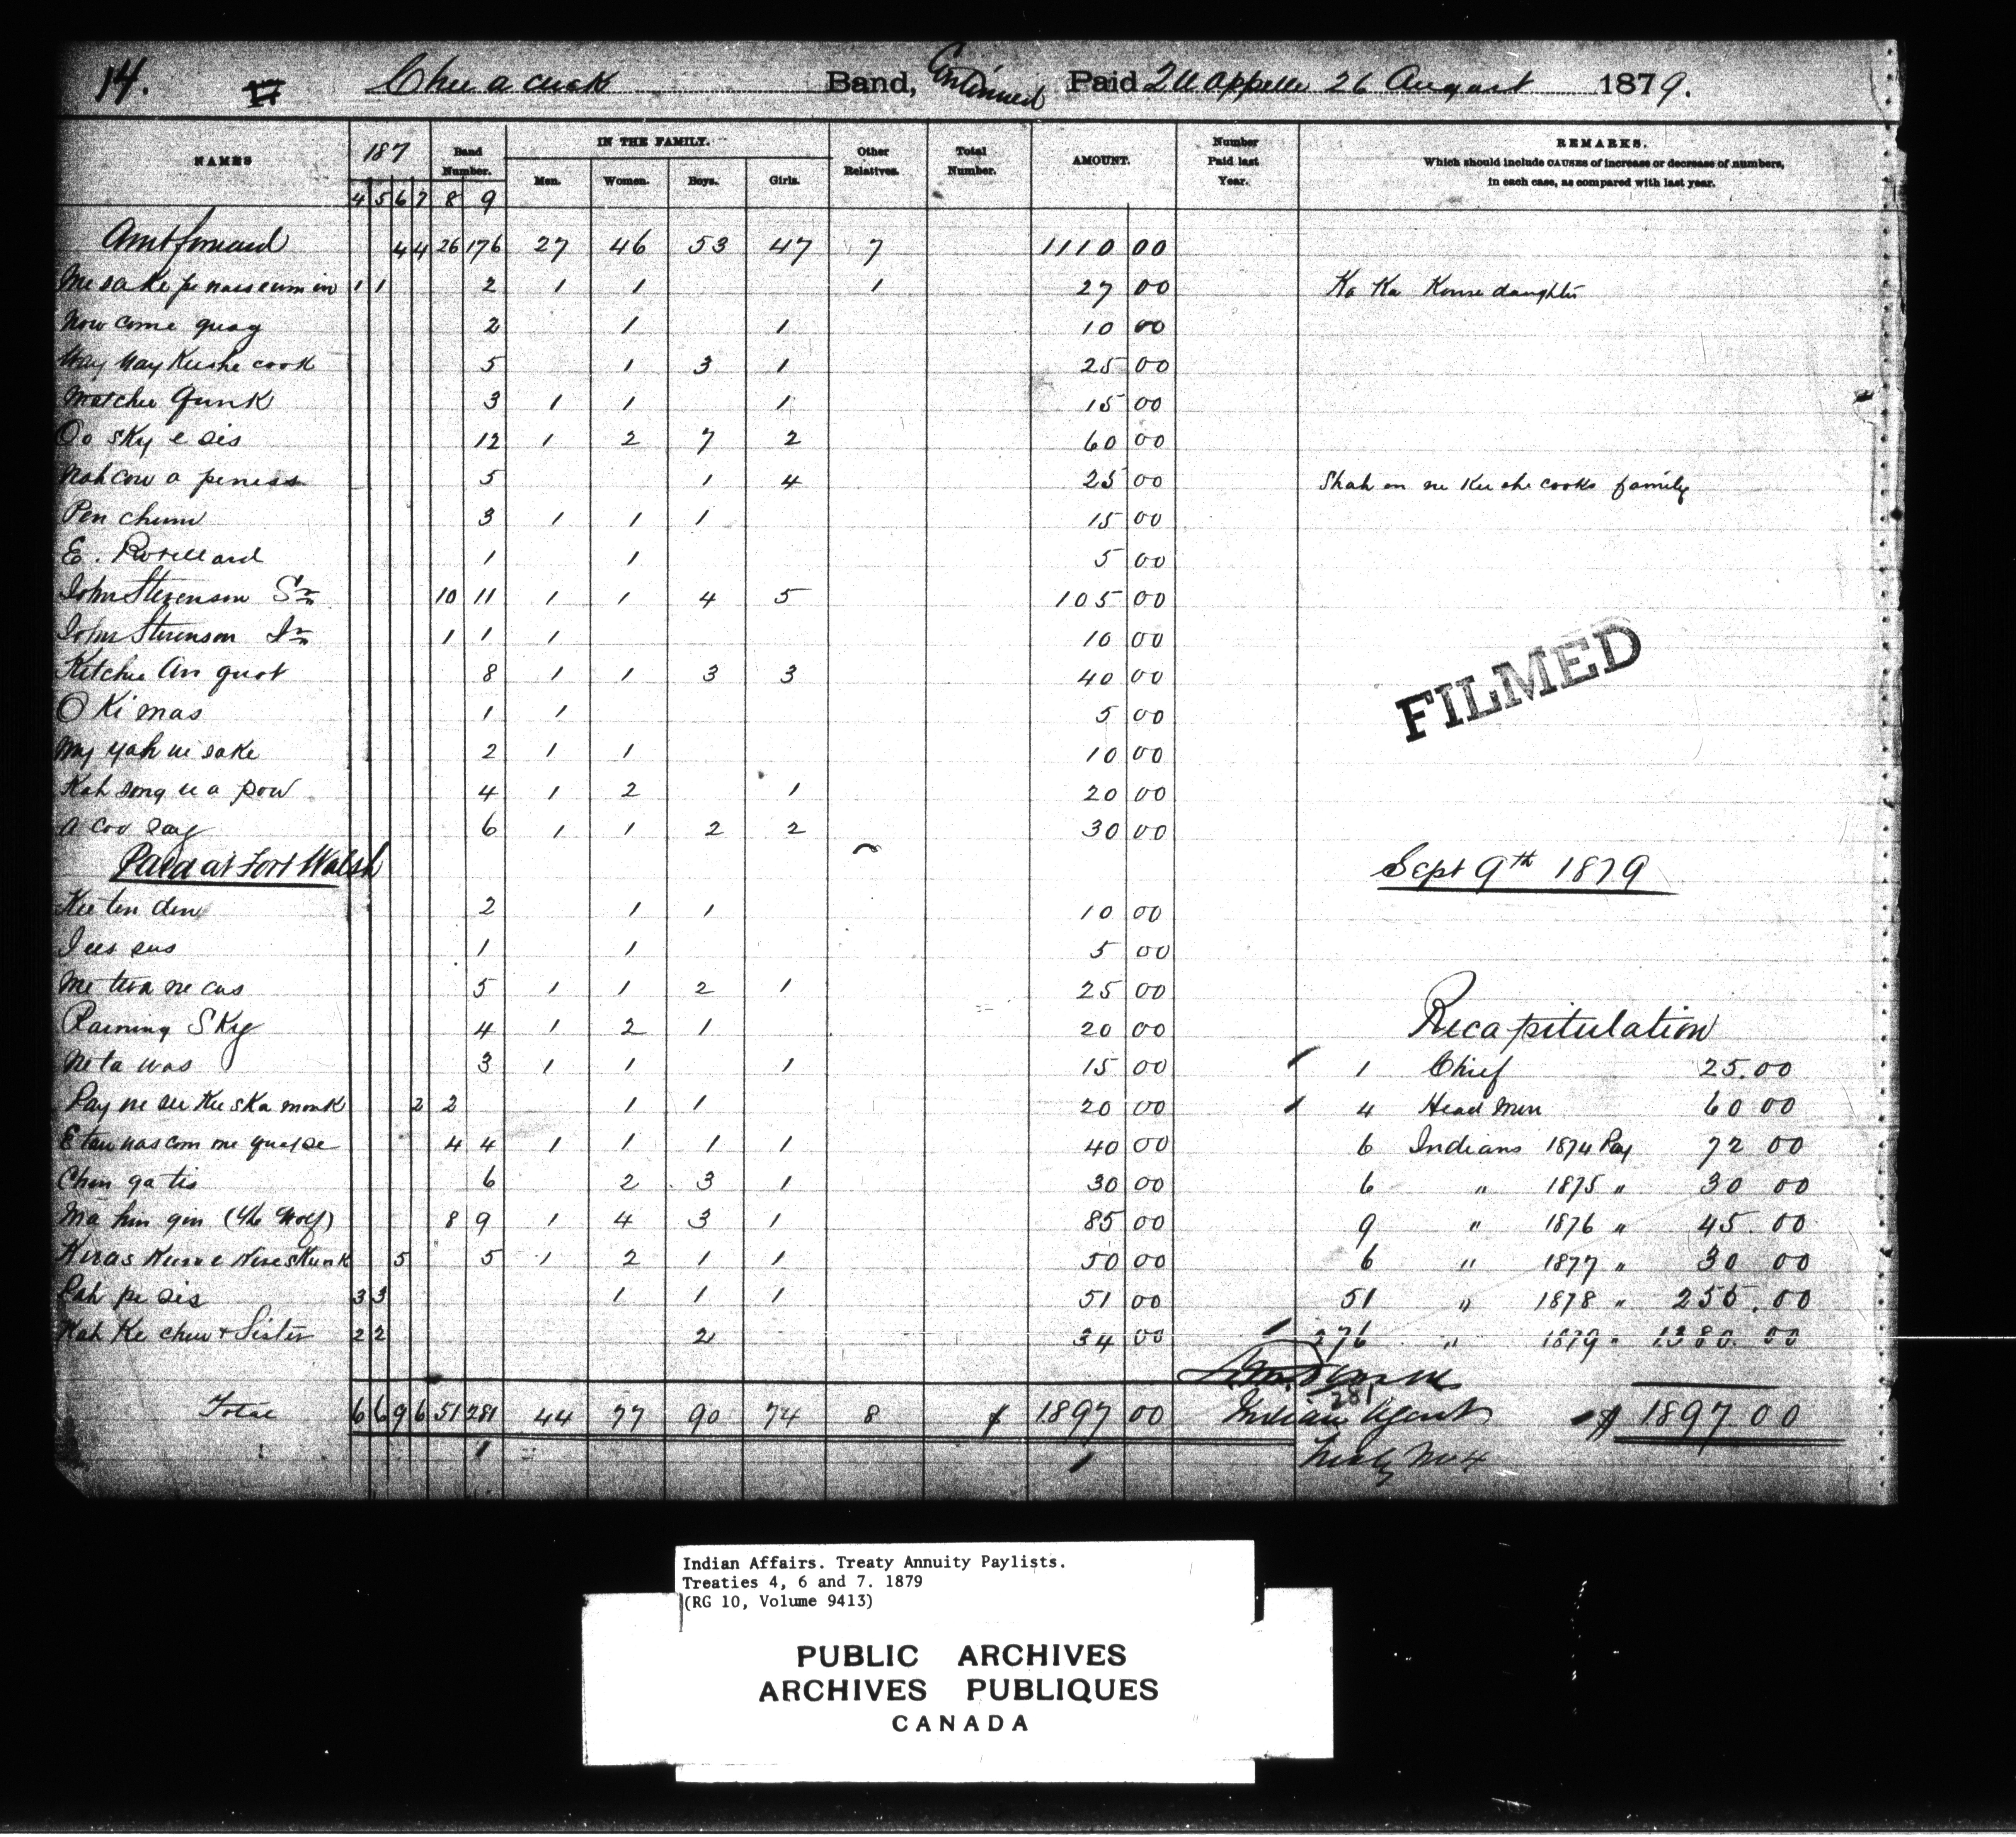 14. Chee a cuck Band, Continued Paid Qu appelle 26 August 1879.
NAMES 187 Band Number. IN THE FAMILY. Other Relatives. Total Number. AMOUNT. Number Paid last Year. REMARKS.
Which should include CAUSES of increase or decrease of numbers,
in each case, as compared with last year.
Men. Women. Boys. Girls.
4 5 6 7 8 9
Amt forward 4 4 26 176 27 46 53 47 7 1110 00
1 1 2 1 1 1 27 00 Ka Ka daughter
Now come quay 2 1 1 10 00
Way Way Kee she cook 5 1 3 1 25 00
Matchee Gunk 3 1 1 1 15 00
Oo sky e sis 12 1 2 7 2 60 00
Nah cow a peness 5 1 4 25 00 Shah en ne Kee she cooks family
Pen chum 3 1 1 1 15 00
E. 1 1 5 00
John Stevenson Sr 10 11 1 1 4 5 105 00
John Stevenson Jr 1 1 1 10 00
Kitchee An quot 8 1 1 3 3 40 00
O Ki mas 1 1 5 00
yah we sake 2 1 1 10 00
Kah song u a pow 4 1 2 1 20 00
a coo say 6 1 1 2 2 30 00
Paid at Fort Walsh Sept 9th 1879
Kee ten den 2 1 1 10 00
1 1 5 00
Me twa ne cas 5 1 1 2 1 25 00
Raining Sky 4 1 2 1 20 00
Recapitulation
Ne ta was 3 1 1 1 15 00 1 Chief 25.00
Pay ne see Kee ska monk 2 2 1 1 20 00 4 Head Men 60 00
4 4 1 1 1 1 40 00 6 Indians 1874 Pay 72 00
Chin ga tis 6 2 3 1 30 00 6 " 1875 " 30 00
Ma hin gin (The Wolf) 8 9 1 4 3 1 85 00 9 " 1876 " 45.00
5 5 1 2 1 1 50 00 6 " 1877 " 30 00
Pah pe sis 3 3 1 1 1 51 00 51 " 1878 " 255.00
Kah Ke chew & Sister 2 2 2 34 00 276 " 1879 " 1380.00
281
Total 6 6 9 6 51 281 44 77 90 74 8 $ 1897 00 Indian Agent $ 1897.00
Treaty No 4
FILMED
Indian Affairs. Treaty Annuity Paylists.
Treaties 4, 6 and 7. 1879
(RG 10, Volume 9413)
PUBLIC ARCHIVES
ARCHIVES PUBLIQUES
CANADA